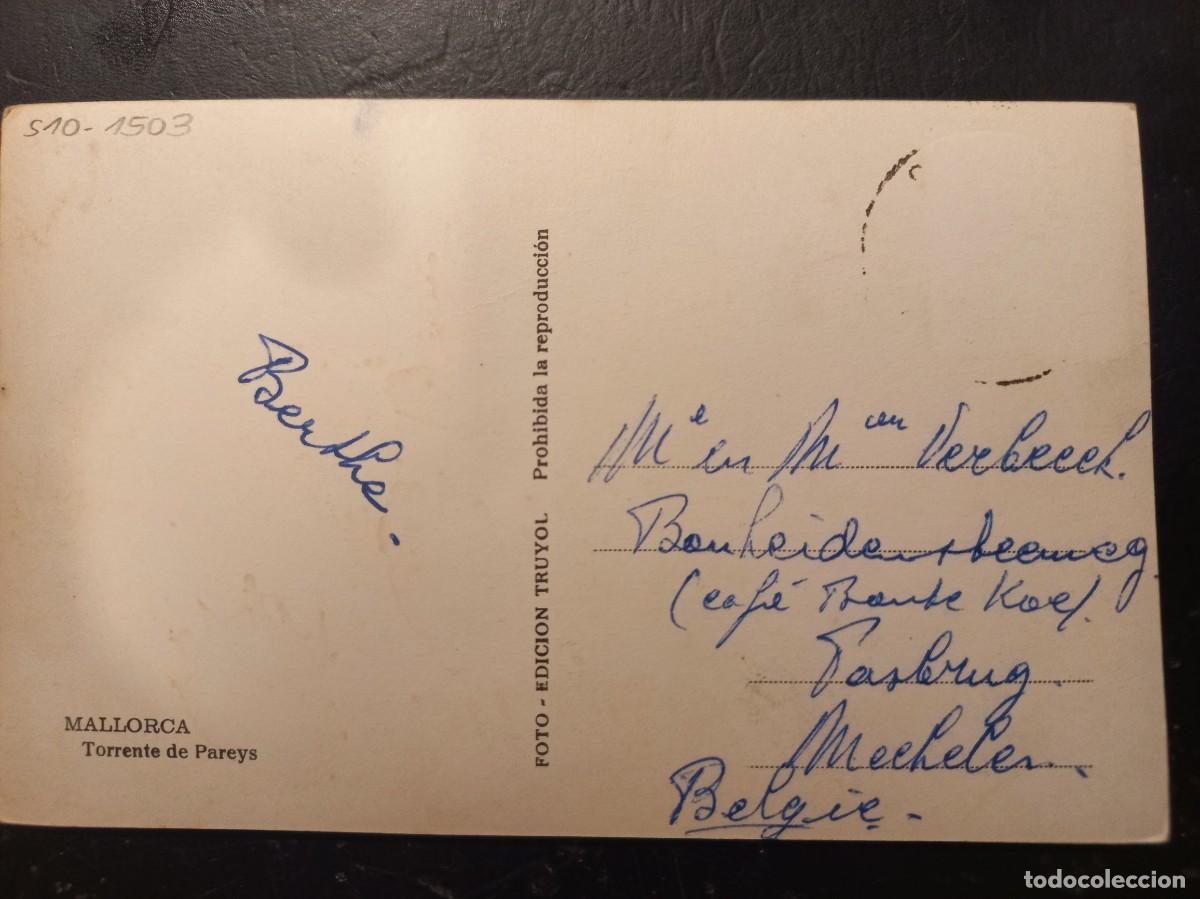 S10-1503
Berthe.
MALLORCA
Torrente de Pareys
FOTO - EDICION TRUYOL Prohibida la reproducción
Me en Verbeeck.
Bonheidensteenweg
(café Bonte Koe).
Mechelen.
Belgie.
todocoleccion